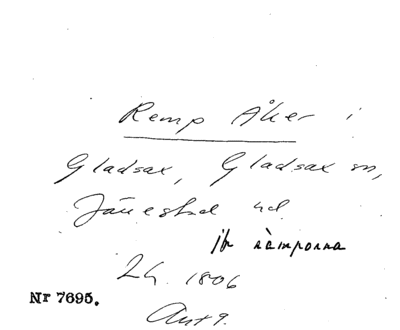 Remp Åker i
Gladsax, Gladsax sn,
Järrestad hd.
jfr rämporna
LH. 1806
Nr 7695.
Akt 9.